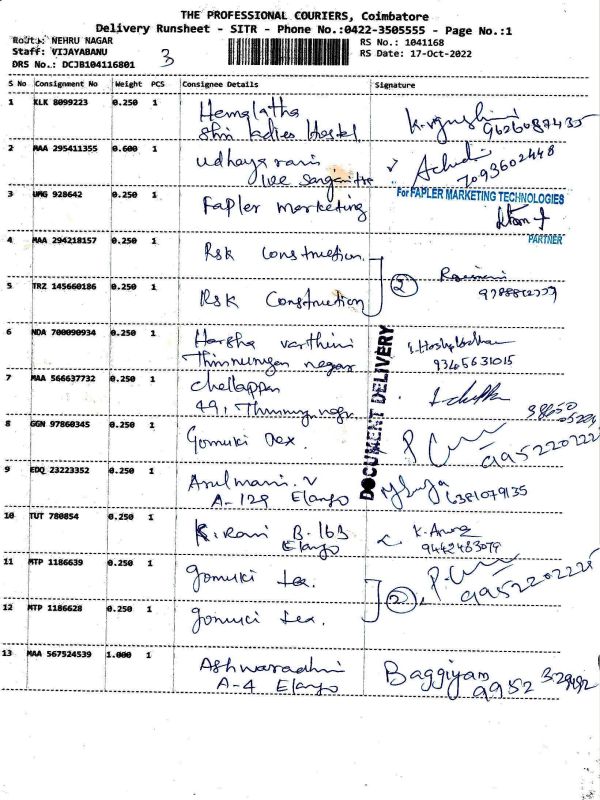 THE PROFESSIONAL COURIERS, Coimbatore
Delivery Runsheet - SITR - Phone No.:0422-3505555 - Page No.:1
Route: NEHRU NAGAR
Staff: VIJAYABANU
DRS No.: DCJB104116801
3
RS No.: 1041168
RS Date: 17-Oct-2022
S No Consignment No Weight PCS Consignee Details Signature
1 KLK 8099223 0.250 1 Hemalatha
Shri Ladies Hostel
9626087435
2 MAA 295411355 0.600 1 Udhaya rani
7093602448
3 UMG 928642 0.250 1 Fapler marketing
For FAPLER MARKETING TECHNOLOGIES
PARTNER
4 MAA 294218157 0.250 1 Rsk Construction
2
5 TRZ 145660186 0.250 1 Rsk Construction
6 NDA 700090934 0.250 1 Harsha varthini
Thirumurugan nagar
9345631015
DOCUMENT DELIVERY
7 MAA 566637732 0.250 1 Chellappan
49,
8 GGN 97860345 0.250 1 Gomuki Dex.
9 EDQ 23223352 0.250 1 Arulmani.V
A-129 Elango
6381079135
10 TUT 780854 0.250 1 K. Rani B.163
Elango
9442483079
11 MTP 1186639 0.250 1 Gomuki Tex.
2
9952202225
12 MTP 1186628 0.250 1 Gomuki Tex.
13 MAA 567524539 1.000 1 Ashwaradhni
A-4 Elango
Baggiyam
9952